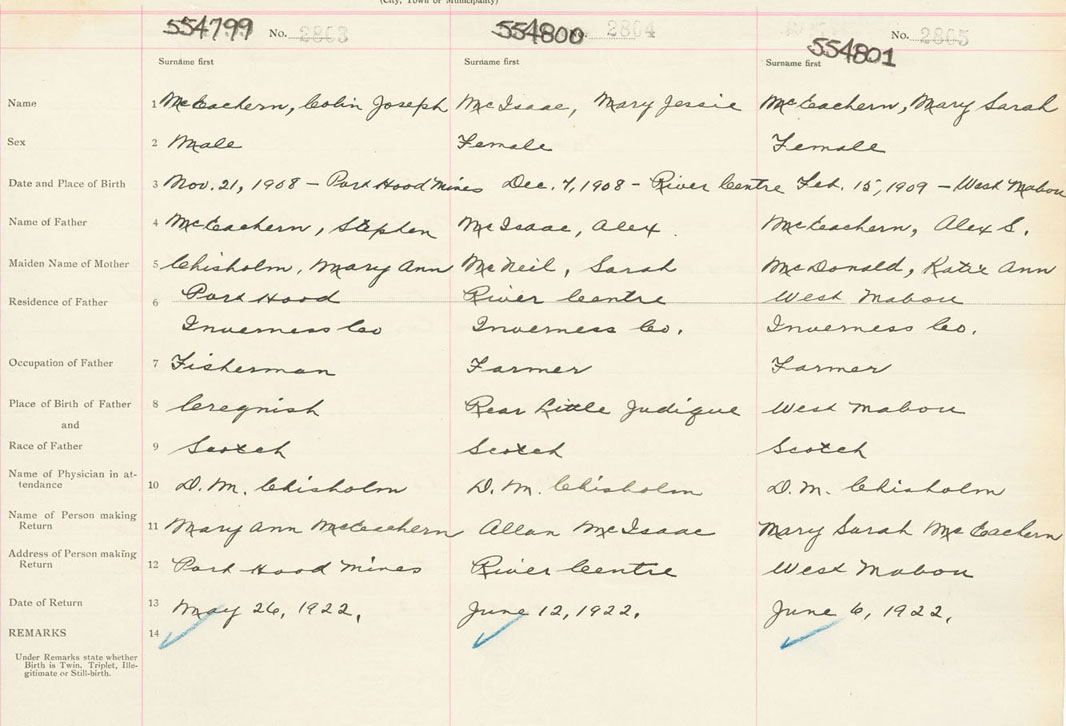 (City, Town or Municipality)
554799 No. 2863 554800 No. 2864 No. 2865
554801
Surname first Surname first Surname first
Name 1 McEachern, Colin Joseph McIsaac, Mary Jessie McEachern, Mary Sarah
Sex 2 Male Female Female
Date and Place of Birth 3 Nov. 21, 1908 – Port Hood Mines Dec. 7, 1908 – River Centre Feb. 15, 1909 – West Mabou
Name of Father 4 McEachern, Stephen McIsaac, Alex. McEachern, Alex S.
Maiden Name of Mother 5 Chisholm, Mary Ann McNeil, Sarah McDonald, Katie Ann
Residence of Father 6 Port Hood River Centre West Mabou
Inverness Co Inverness Co. Inverness Co.
Occupation of Father 7 Fisherman Farmer Farmer
Place of Birth of Father 8 Creignish Rear Little Judique West Mabou
and
Race of Father 9 Scotch Scotch Scotch
Name of Physician in at-
tendance 10 D. M. Chisholm D. M. Chisholm D. M. Chisholm
Name of Person making
Return 11 Mary Ann McEachern Allan McIsaac Mary Sarah McEachern
Address of Person making
Return 12 Port Hood Mines River Centre West Mabou
Date of Return 13 May 26, 1922. June 12, 1922. June 6, 1922.
REMARKS 14
Under Remarks state whether
Birth is Twin, Triplet, Ille-
gitimate or Still-birth.